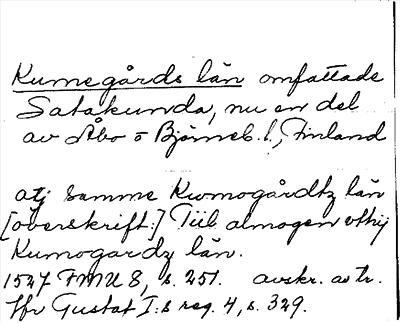 Kumegårds län omfattade
Satakunda, nu en del
av Åbo o Björneb. l., Finland
atj samme Kwmogårdtz län
[överskrift:] Tiil almogen vthij
Kumogardz län.
1527 FMU 8, s. 251. avskr. av tr.
Jfr Gustaf I:s reg. 4, s. 329.